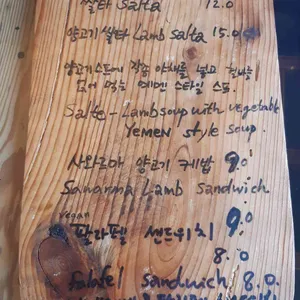 쌀타 Salta 12.0
양고기 쌀타 Lamb Salta 15.0
양고기 스프에 각종 야채를 넣고
예멘 스타일 스프.
Salta - Lamb soup with vegetable
YEMEN style soup.
샤와르마 양고기 케밥 9.0
Sawarma Lamb Sandwich
vegan
팔라펠 샌드위치 9.0
8.0
Falafel Sandwich 8.0.